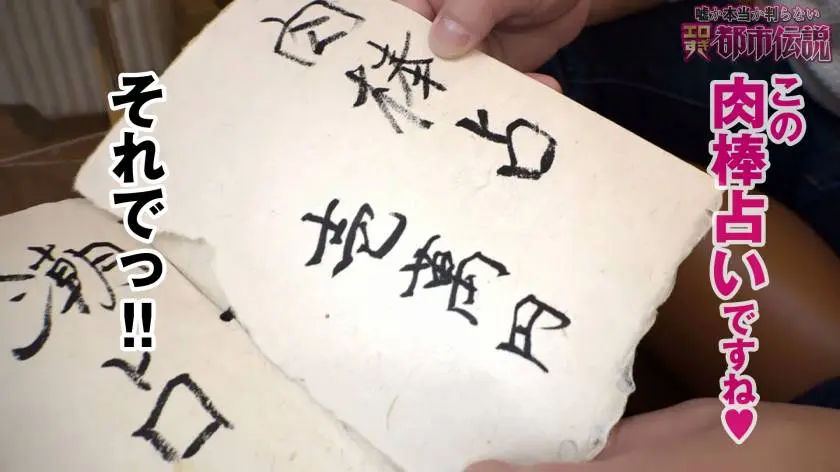 嘘か本当か判らない
エロすぎ都市伝説
この
肉棒占いですね♥
それでっ!!
肉棒占
壱萬円
潮占